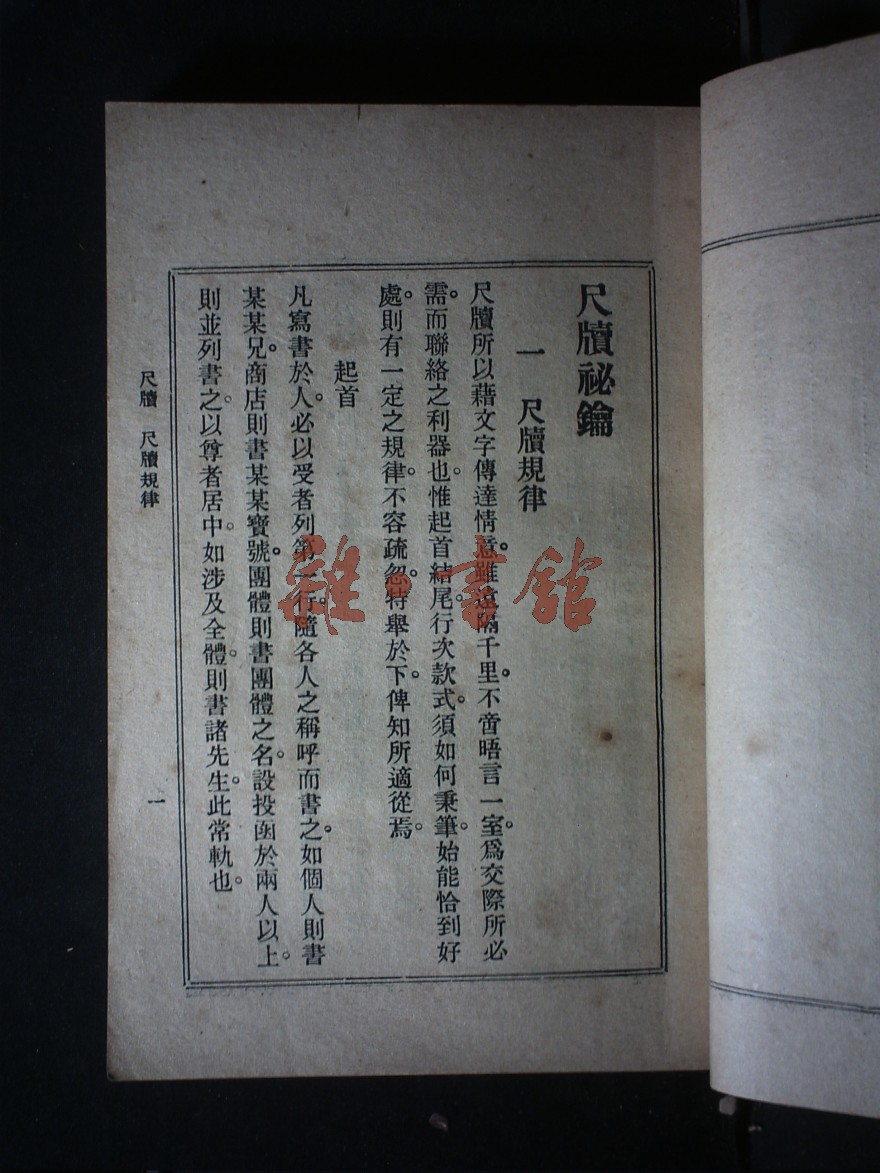 尺牘祕鑰
一　尺牘規律
尺牘所以藉文字傳達情意。雖遠隔千里。不啻晤言一室。爲交際所必
需。而聯絡之利器也。惟起首結尾。行次款式。須如何秉筆。始能恰到好
處。則有一定之規律。不容疏忽。特舉於下。俾知所適從焉。
起首
凡寫書於人。必以受者列第一行。隨各人之稱呼而書之。如個人則書
某某兄。商店則書某某寶號。團體則書團體之名。設投函於兩人以上。
則並列書之。以尊者居中。如涉及全體。則書諸先生。此常軌也。
尺牘　尺牘規律
一
雜·書館